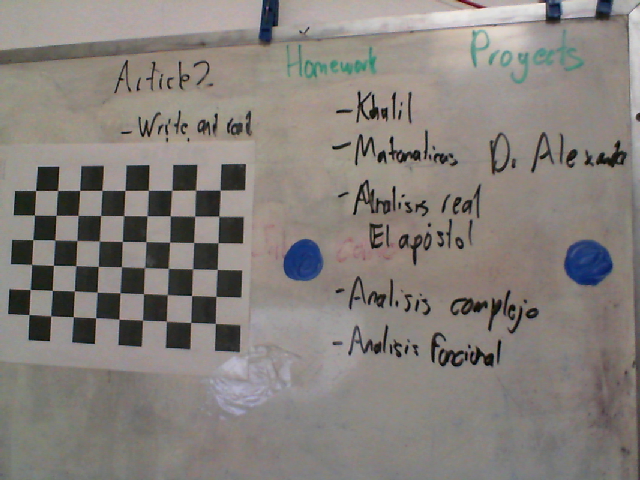 Article 2
- Write and read
Homework
- Khalil
- Matematicas
- Analisis real
El apóstol
- Analisis complejo
- Analisis Funcional
Proyects
D. Alexander